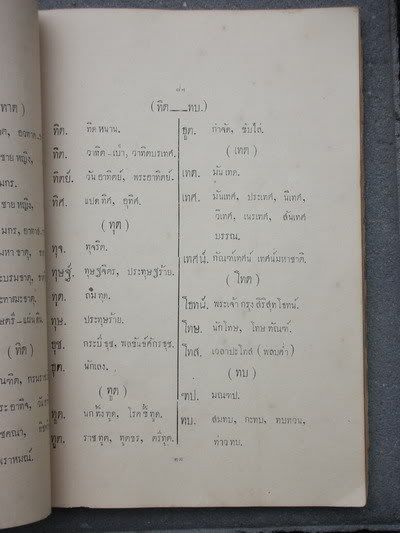 ทาต )
ชายหญิง,
มกร.
( ทิต )
พราหมณ์.
๘๓
( ทิต__ทบ. )
ทิด. ทิดหนาน.
ทิต. วาทิต-เป่า, วาทิตบรเทศ.
ทิตย์. วันอาทิตย์, พระอาทิตย์.
ทิศ. แปดทิศ, อุทิศ.
( ทุต )
ทุจ. ทุจริต.
ทุษฐ์. ทุษฐจิตร, ประทุษฐร้าย.
ทุด. ถ่มทุด.
ทุษ. ประทุษร้าย.
ธุช. กระบี่ธุช, พลขันธ์ศักรธุช.
ธุต. นักเลง.
( ทูต )
ทูด. นกทั้งทูด, โรคขี้ทูด.
ทูต. ราชทูต, ทูตขร, ตรีทูต.
ธูต. กำจัด, ขับไล่.
( เทต )
เทต. มันเทต.
เทศ. มันเทศ, ประเทศ, นิเทศ,
วิเทศ, เนรเทศ, สันเทศ
บรรณ.
เทศน์. กัณฑ์เทศน์ เทศน์มหาชาติ.
( โทต )
โชทน์. พระเจ้ากรุงสิริสุทโธทน์.
โทษ. นักโทษ, โทษทัณฑ์.
โทส. เวลาปะโทส (พลบค่ำ)
( ทบ )
ฑป. มณฑป.
ทบ. สมทบ, กะทบ, ทบทวน,
ท่าวทบ.